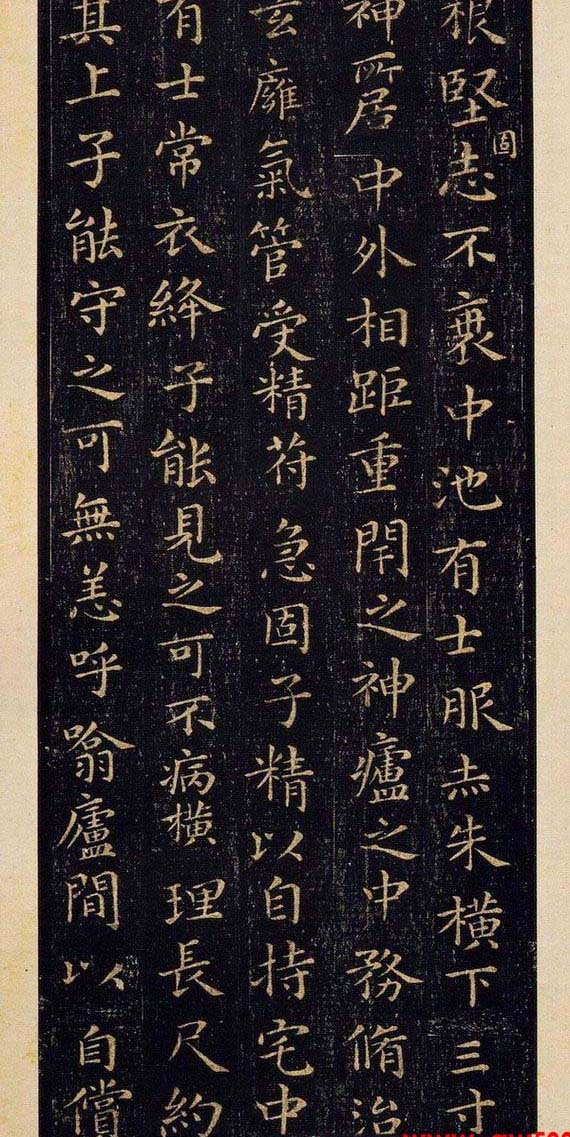 根堅志固不衰中池有士服赤朱橫下三寸
神所居中外相距重閇之神廬之中務脩治
玄癰氣管受精苻急固子精以自持宅中
有士常衣絳子能見之可不病橫理長尺約
其上子能守之可無恙呼噏廬間以自償